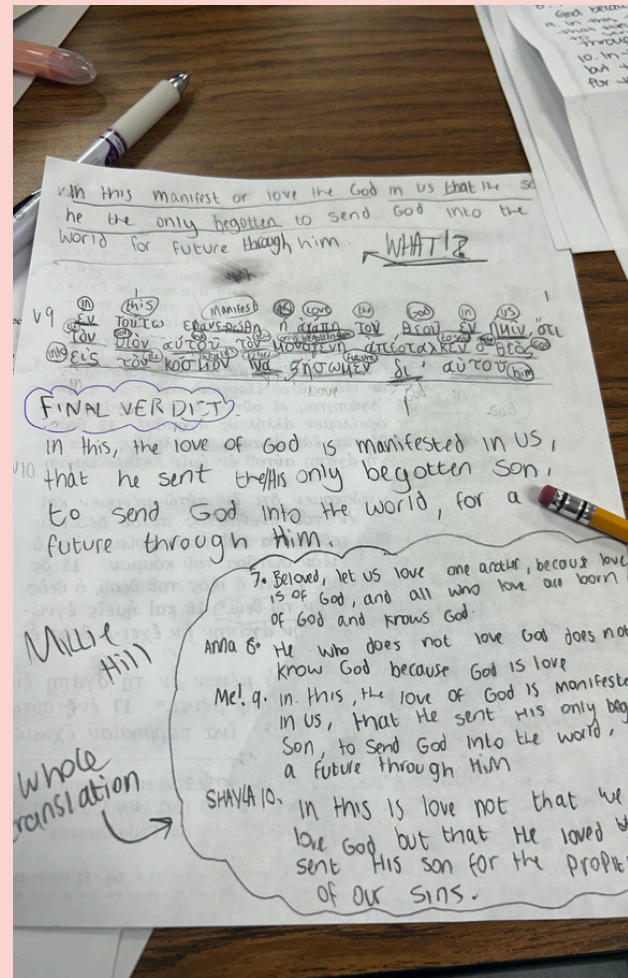 v.In this manifest or love the God in us that the so
he the only begotten to send God into the
world for future through him.
WHAT!?
in this Manifest love the God in us
v9 ἐν τούτῳ ἐφανερώθη ἡ ἀγάπη τοῦ θεοῦ ἐν ἡμῖν, ὅτι
τὸν υἱὸν αὐτοῦ τὸν μονογενῆ ἀπέσταλκεν ὁ θεὸς God
into εἰς τὸν κόσμον ἵνα ζήσωμεν δι' αὐτοῦ him
FINAL VERDICT
In this, the love of God is manifested in us,
v10 that he sent the/His only begotten son,
to send God into the world, for a
future through Him.
7. Beloved, let us love one another, becaus love
is of God, and all who love are born
of God and knows God.
Anna 8. He who does not love God does not
know God because God is love
Me! 9. in this, the love of God is manifeste
in us, that He sent His only beg
Son, to send God into the world,
a future through HiM
SHAYLA 10. In this is love not that we
love God but that He loved
sent His son for the propit
of our sins.
Millie
Hill
whole
translation